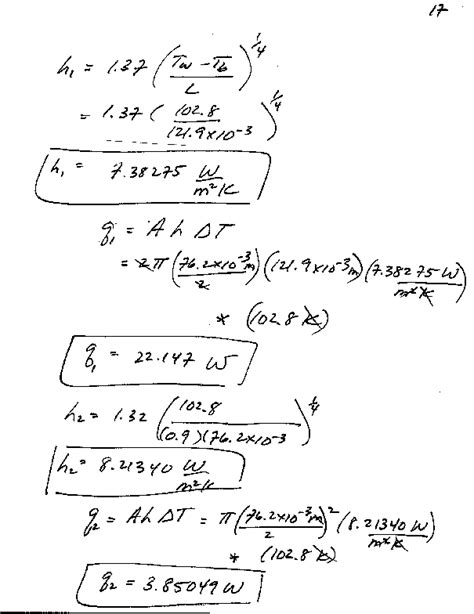 17
h₁ = 1.37 (Tw - Tb / L)^1/4
= 1.37 (102.8 / 121.9x10⁻³)^1/4
h₁ = 7.38275 W/m²K
q₁ = A h ΔT
= 2π (76.2x10⁻³m / 2) (121.9x10⁻³m) (7.38275 W / m²K)
* (102.8 K)
q₁ = 22.147 W
h₂ = 1.32 (102.8 / (0.9)(76.2x10⁻³)^1/4
h₂ = 8.21340 W/m²K
q₂ = A h ΔT = π (76.2x10⁻³m / 2)² (8.21340 W / m²K)
* (102.8 K)
q₂ = 3.85049 W